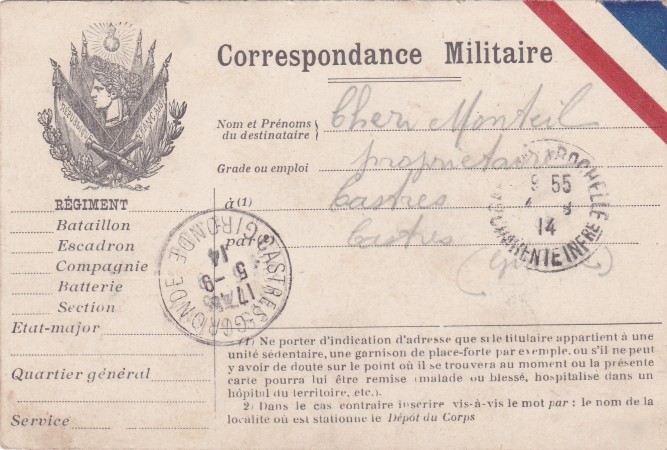 RÉPUBLIQUE FRANÇAISE
Correspondance Militaire
Nom et Prénoms du destinataire
Cheri Monteil
Grade ou emploi
propriétaire
à (1)
Castres
par
Castres
(Gironde)
LA ROCHELLE
9 55
14
CHARENTE INFRE
CASTRES-GIRONDE
GIRONDE
17
5 -9
14
RÉGIMENT
Bataillon
Escadron
Compagnie
Batterie
Section
Etat-major
Quartier général
Service
(1) Ne porter d'indication d'adresse que si le titulaire appartient à une
unité sédentaire, une garnison de place-forte par exemple, ou s'il ne peut
y avoir de doute sur le point où il se trouvera au moment ou la présente
carte pourra lui être remise (malade ou blessé, hospitalisé dans un
hôpital du territoire, etc.).
2) Dans le cas contraire inscrire vis-à-vis le mot par : le nom de la
localité où est stationné le Dépôt du Corps